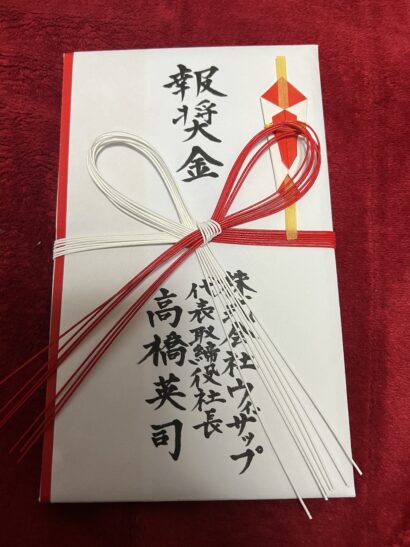 報奨金
株式会社ウィザップ
代表取締役社長
高橋英司